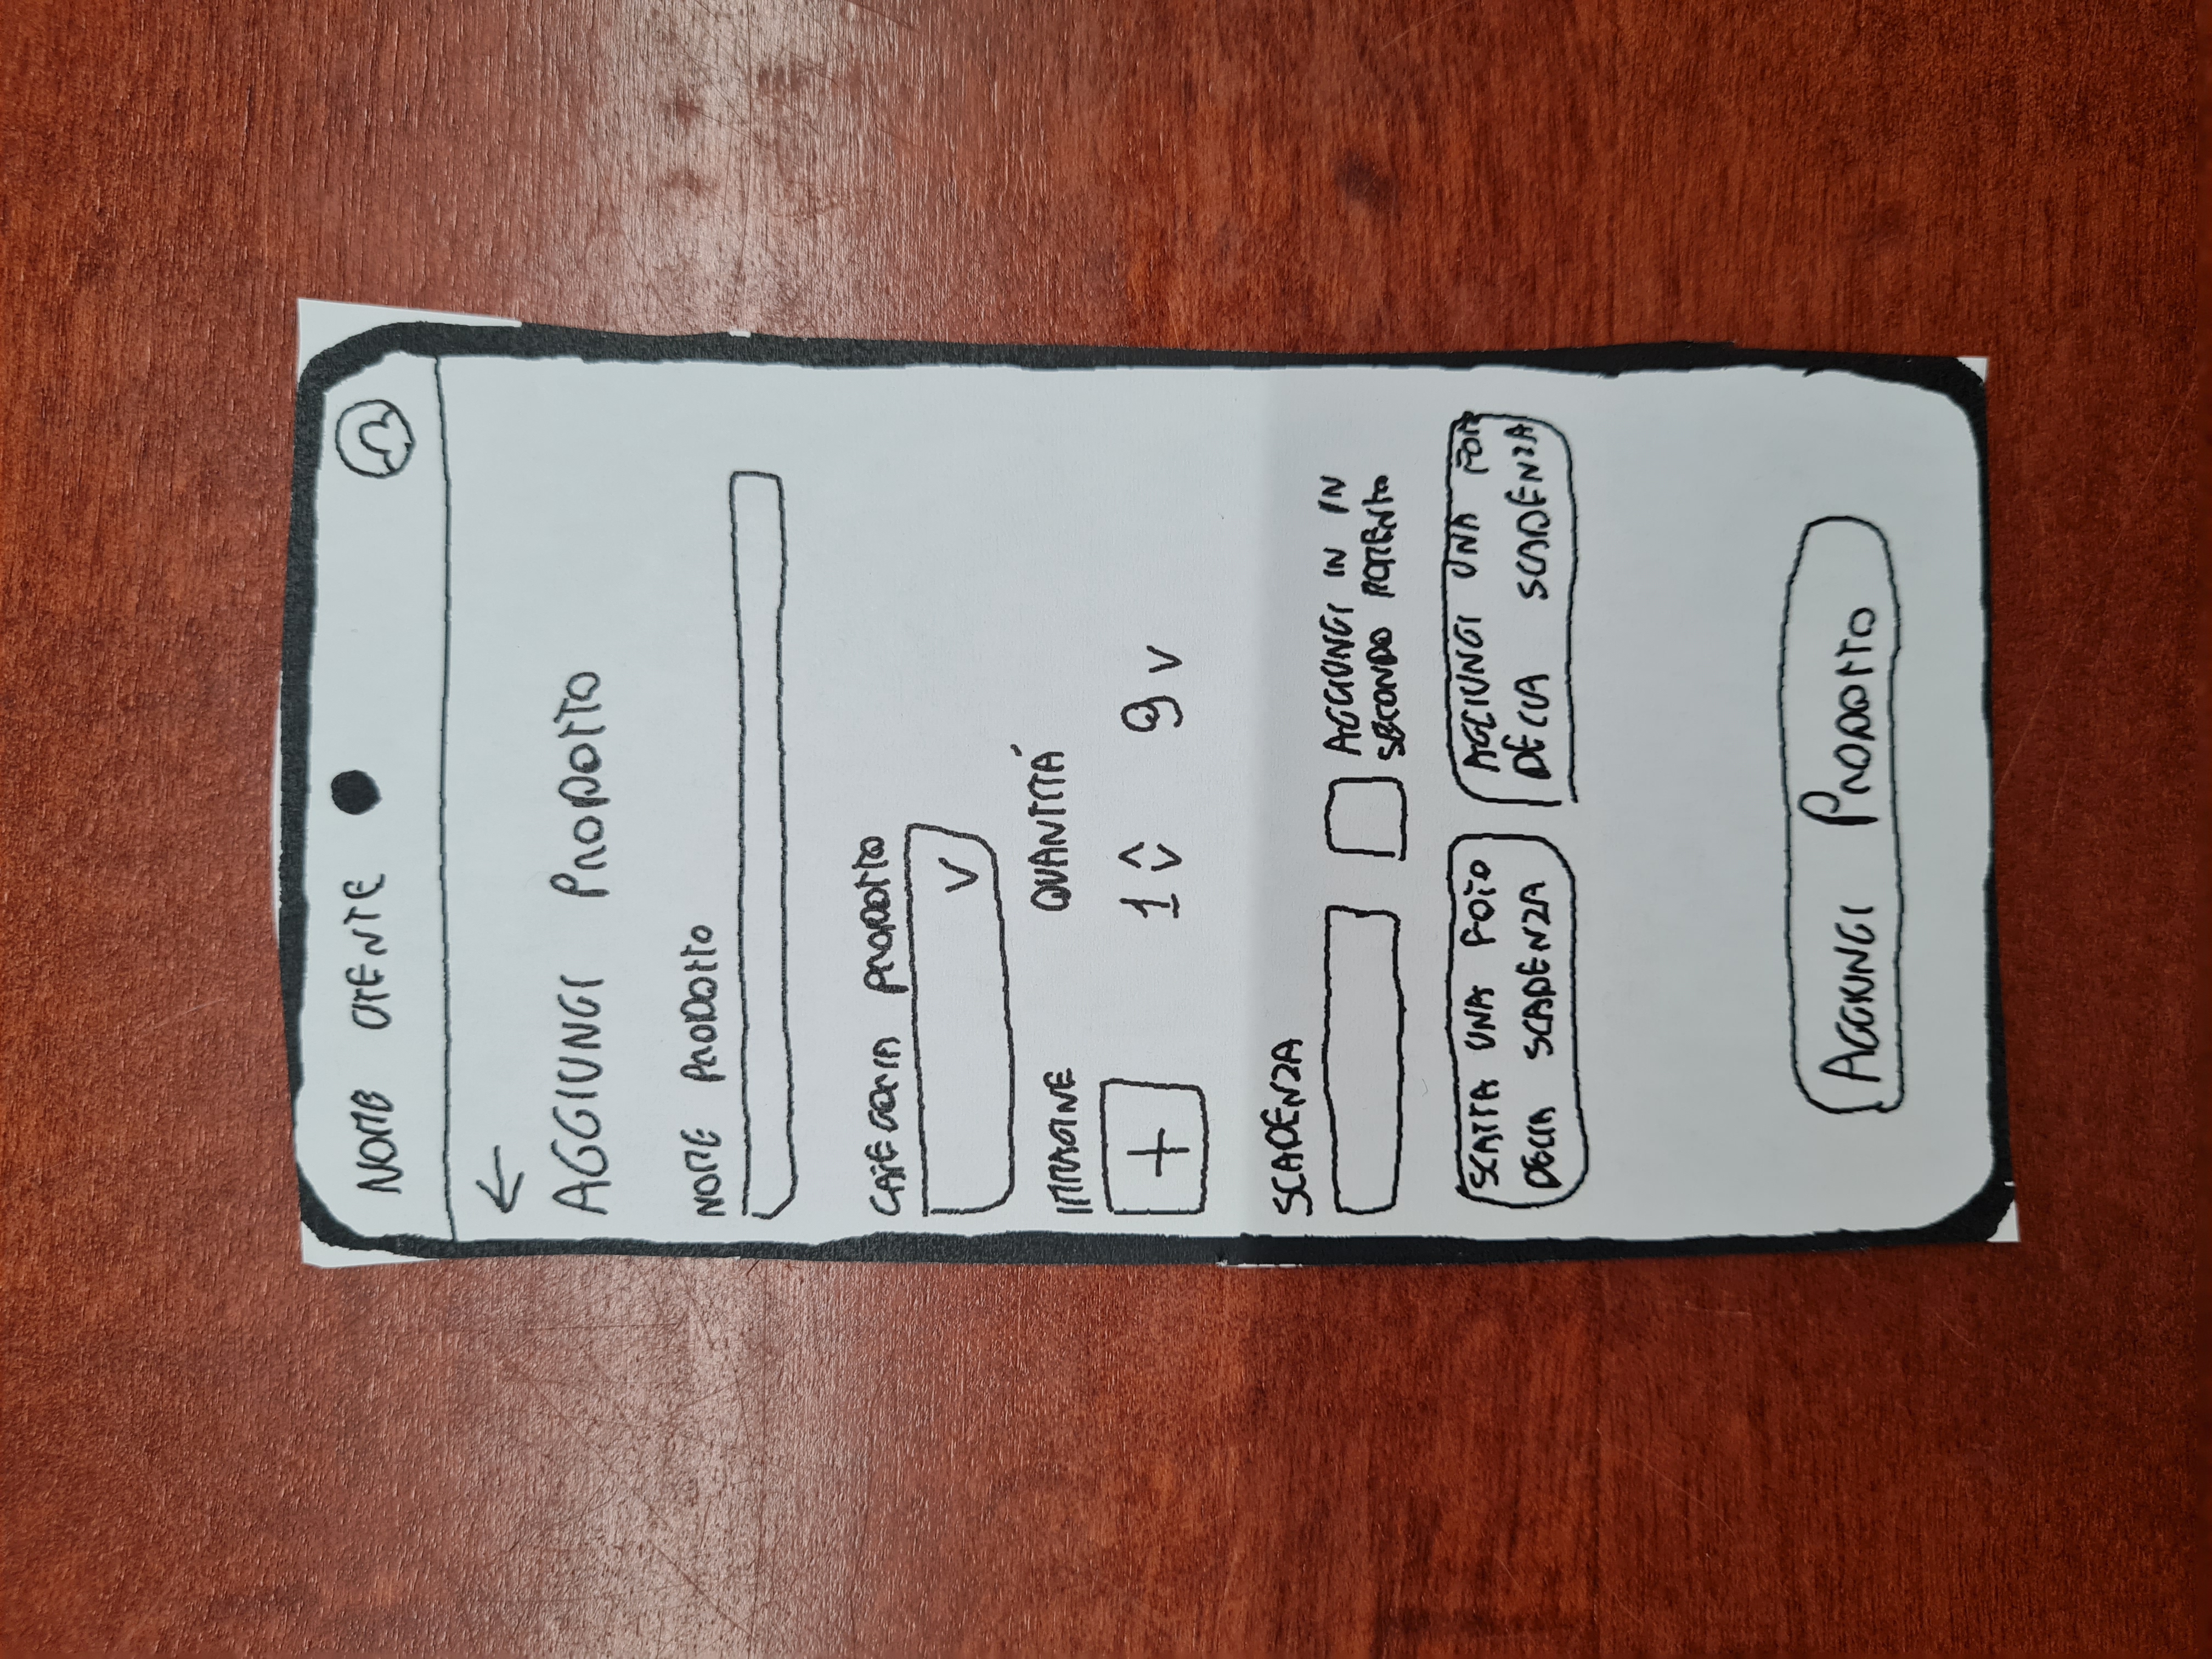 NOME UTENTE
AGGIUNGI PRODOTTO
NOME PRODOTTO
CATEGORIA PRODOTTO
V
IMMAGINE QUANTITÁ
+ 1 g v
SCADENZA
AGGIUNGI IN IN
SECONDO MOMENTO
SCATTA UNA FOTO
DELLA SCADENZA
AGGIUNGI UNA FOTO
DELLA SCADENZA
AGGIUNGI PRODOTTO